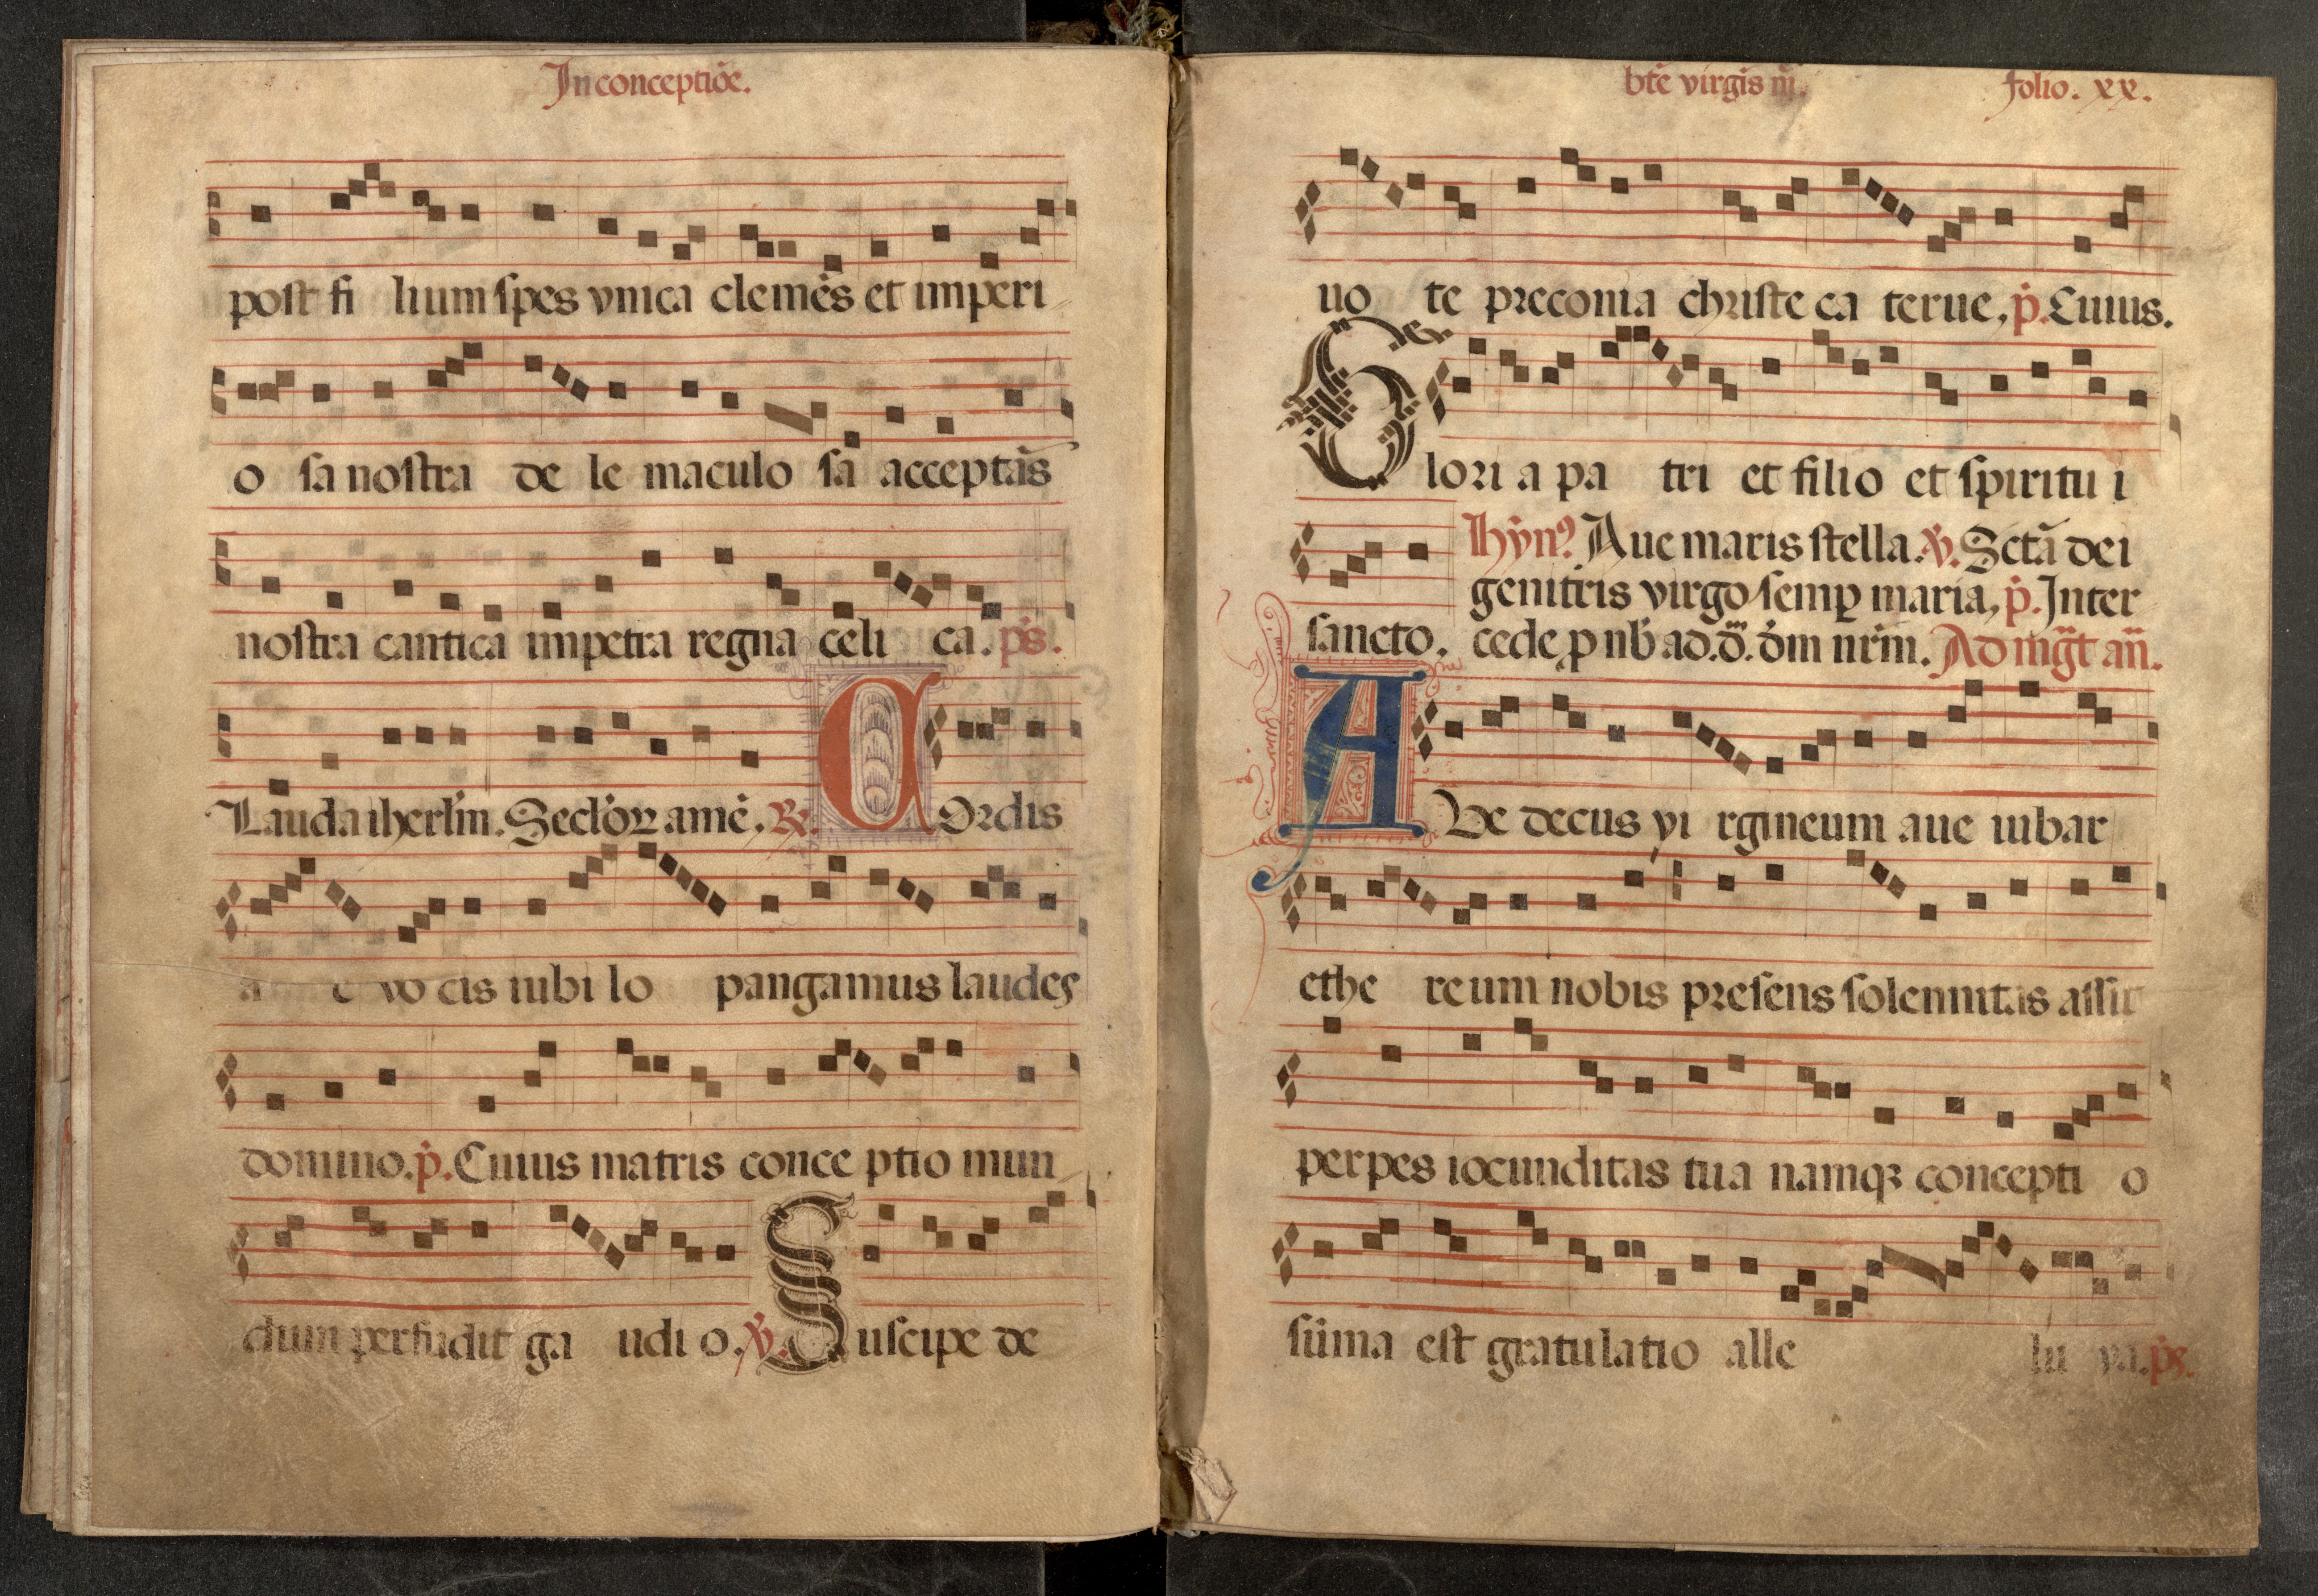 In conceptiõe.
post fi lium spes vnica clemẽs et imperi
o sa nostra de le maculo sa acceptãs
nostra cantica impetra regna celi ca. p̃s.
Lauda iherl̃m. Seclõꝝ amẽ. ℟. COrdis
vo cis iubi lo pangamus laudes
domino. p̃. Cuius matris conce ptio mun
dum perfudit ga udi o. ℣. Suscipe de
bt̃e virgĩs m̃. folio. xx.
uo te preconia christe ca terue, p̃. Cuius.
Glori a pa tri et filio et spiritu i
hỹnꝰ. Aue maris stella. ℣. Sctã dei
genitris virgo semꝑ maria, p̃. Inter
sancto. cede ꝓ nb̃ ad. d̃. dm̃ nr̃m. Ad mg̃t añ.
AUe decus vi rgineum aue iubar
ethe reum nobis presens solennitas assit
perpes iocunditas tua namqꝫ concepti o
sũma est gratulatio alle lu ya. p̃s.